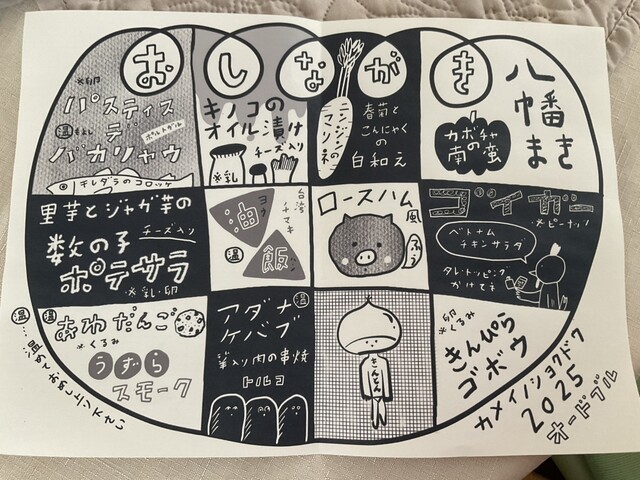 おしながき
※卵
パスティス
温
デ
ポルトガル
バカリャウ
キレダラのコロッケ
キノコの
オイル漬け
チーズ入り
※乳
ニンジンの
マリネ
春菊と
こんにゃく
の
白和え
カボチャ
の
南蛮
八
幡
まき
里芋とジャガ芋の
数の子
チーズ入り
ポテサラ
※乳・卵
台湾
チマキ
油
飯
温
ロースハム
風
ゴイガー
※ピーナッツ
ベトナム
チキンサラダ
タレ・トッピング
かけてネ
あわだんご
※くるみ
うずら
スモーク
温
温…温めておめし上ンス さい
アダナ
温
ケバブ
羊入り肉の串焼
トルコ
きんとん
卵
※くるみ
きんぴら
ゴボウ
カメイノショクドウ
2025
オードブル